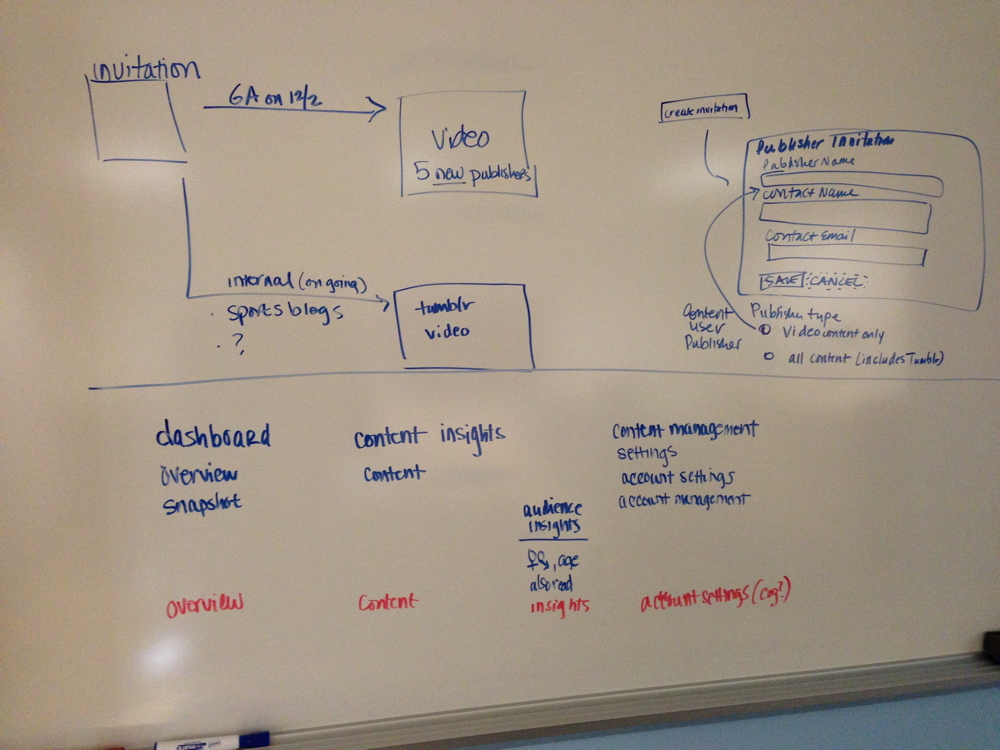 invitation
GA on 12/2
video
5 new publishers
internal (ongoing)
· sports blogs
· ?
tumblr
video
create invitation
Publisher Invitation
Publisher Name
Contact Name
Contact Email
SAVE CANCEL
Content
User
Publisher
Publisher type
Video content only
all content (includes Tumblr)
dashboard
overview
snapshot
content insights
content
audience
insights
, age
also read
content management
settings
account settings
account management
overview
content
insights
account settings (cog?)